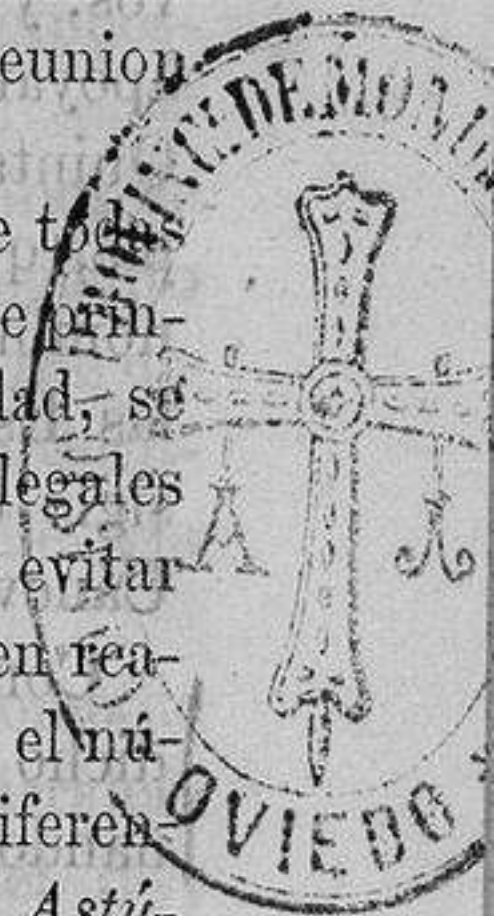 eunion
e todas
e prin-
dad, se
legales
evitar
en rea-
el nú-
iferen-
Astú-
DE MON
A
OVIEDO